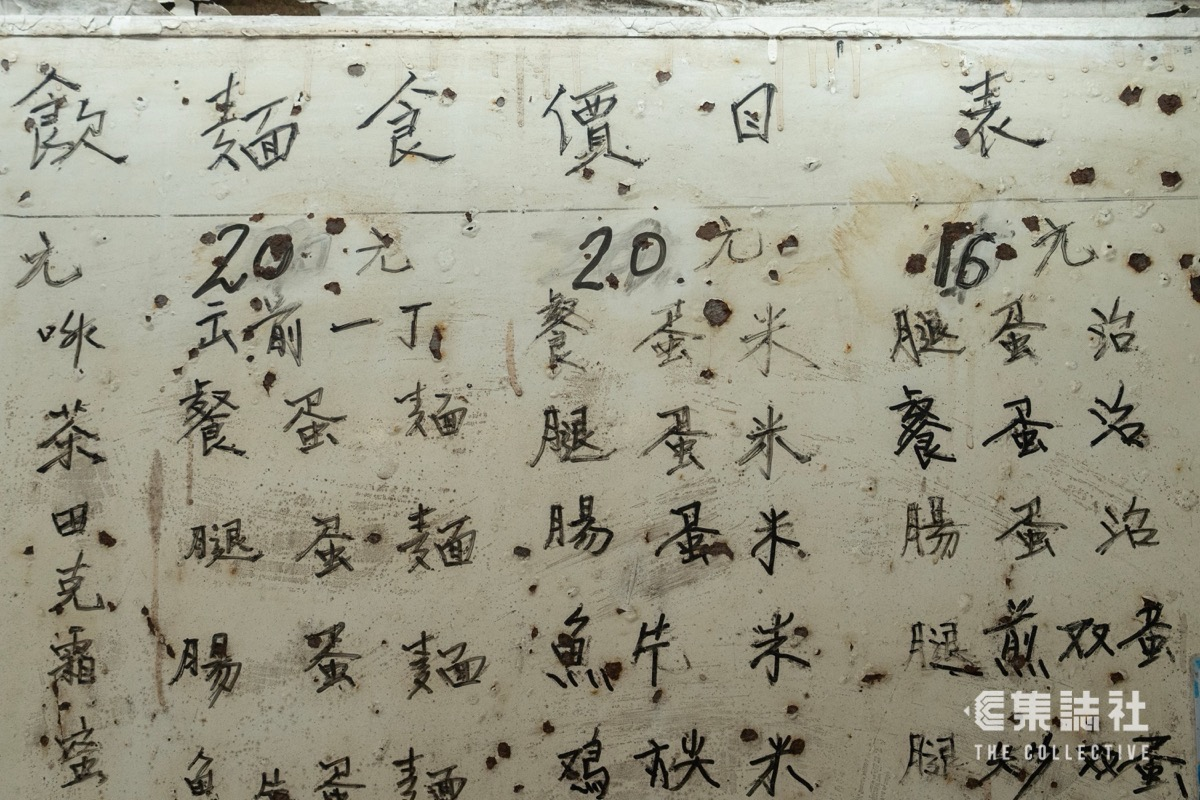 飲麵食價目表
元
啡
茶
田
克
霜
蜜
20元
出前一丁
餐蛋麵
腿蛋麵
腸蛋麵
魚片蛋麵
20元
餐蛋米
腿蛋米
腸蛋米
魚片米
米
16元
腿蛋治
餐蛋治
腸蛋治
腿煎双蛋
腿炒双蛋
集誌社
THE COLLECTIVE